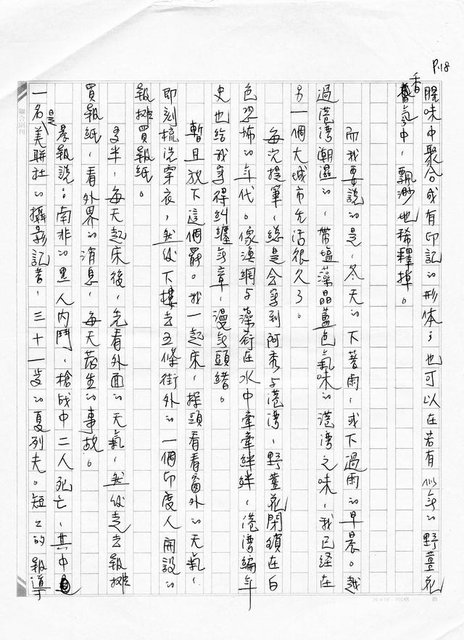 P.18
腥味中聚合成有印記的形体；也可以在若有似無的野薑花
香氣中，飄渺地稀釋掉。
而我要說的是，冬天的下著雨，或下過雨的早晨。越
過港灣潮濕的，帶鹽藻晶藍色氣味的港灣之味，我已經在
另一個大城市生活很久了。
每次提筆，總是會寫到阿秀与港灣，野薑花閉鎖在白
色恐怖的年代。像漁網与藻荇在水中牽牽絆絆，港灣編年
史也給我寫得糾纏
章，漫
頭緒。
暫且放下這個罷。我一起床，探頭看看窗外的天氣，
即刻梳洗穿衣，然後下樓去五條街外的一個印度人開設的
報攤買報紙。
多半，每天起床後，先看外面的天氣，然後走去報攤
買報紙，看外界的消息，每天發生的事故。
是報說：南非的黑人內鬥，槍战中二人死亡，其中
一名是美聯社的攝影記者，三十一歲的夏列夫。短短的報導